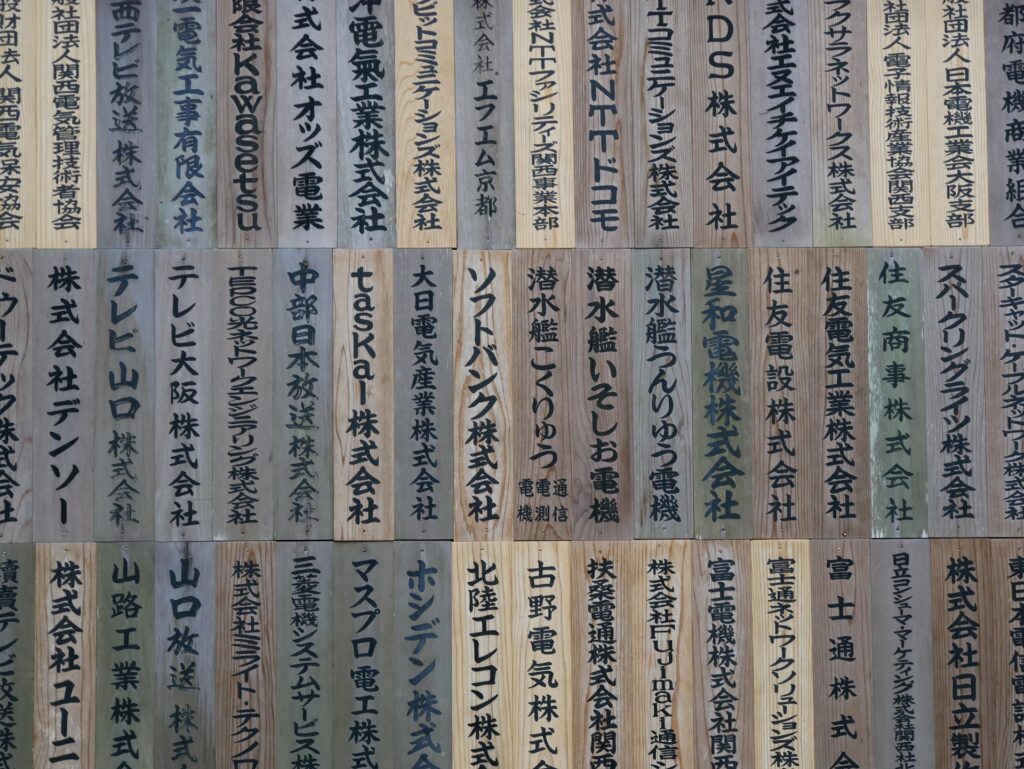 都府電機商業組合
般社団法人日本電機工業会大阪支部
社団法人電子情報技術産業協会関西支部
クサラネットワークス株式会社
式会社エヌエイチケイアイテック
DS株式会社
TTコミュニケーションズ株式会社
式会社NTTドコモ
式会社NTTファシリティーズ関西事業本部
株式会社エフエム京都
ビットコミュニケーションズ株式会社
沖電氣工業株式会社
式会社オッズ電業
限会社Kawasetsu
一電気工事有限会社
西テレビ放送株式会社
般社団法人関西電気管理技術者協会
般財団法人関西電気保安協会
スターキャット・ケーブルネットワーク株式会社
スパークリングライツ株式会社
住友商事株式会社
住友電気工業株式会社
住友電設株式会社
星和電機株式会社
潜水艦うんりゅう電機
潜水艦いそしお電機
潜水艦こくりゅう 通信 電測 電機
ソフトバンク株式会社
大日電気産業株式会社
taska一株式会社
中部日本放送株式会社
光ネットワークエンジニアリング株式会社
テレビ大阪株式会社
テレビ山口株式会社
株式会社デンソー
ドウーテック株式会
東日本電信電話株
株式会社日立製作
日立コンシューマ・マーケティング株式会社関西支
富士通株式会
富士通ネットワークソリューションズ株
富士電機株式会社関西
株式会社Fujimaki通信
扶桑電通株式会社関西
古野電気株式会
北陸エレコン株式
ホシデン株式会
マスプロ電工株
三菱電機システムサービス株
株式会社ミライト・テクノロ
山口放送株式
山路工業株式
株式会社ユーニ
讀賣テレビ放送株